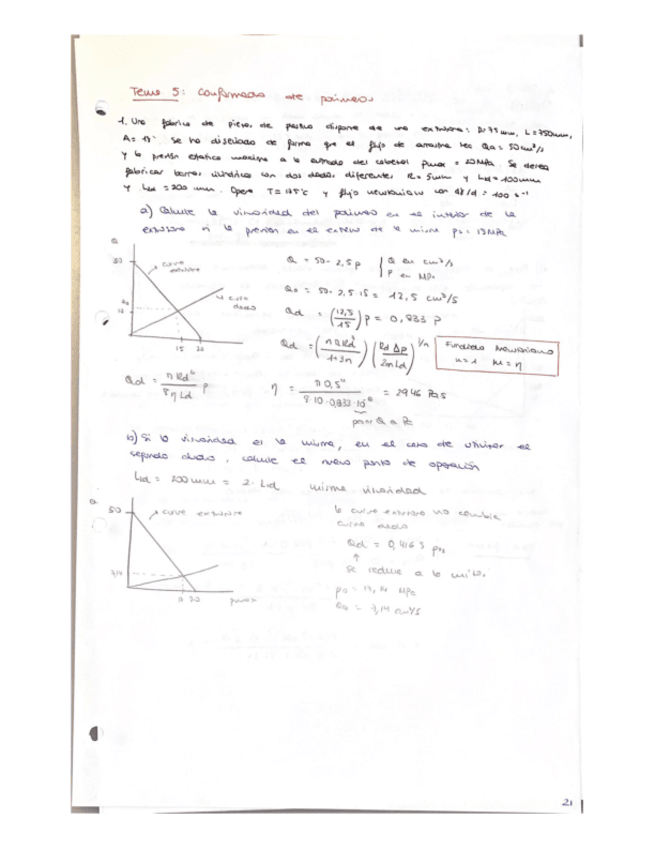 Tema 5: Conformado de polímeros
1. Una fábrica de piezas de plástico dispone de una extrusora: D=75mm, L=750mm,
A=17° se ha diseñado de forma que el flujo de arrastre sea Qa=50cm³/s
y la presión estática máxima a la entrada del cabezal pmax = 20MPa. Se desea
fabricar barras cilíndricas con dos dados diferentes R=5mm y Ld=100mm
y Ld2=200 mm. Opera T=175°C y flujo newtoniano con = 100 s⁻¹
a) Calcule la viscosidad del polímero en el interior de la
extrusora si la presión en el extremo de la misma p0=15MPa
Q
50
curva extrusora
curva dado
Q0
12
15 20
Q = 50 - 2,5 p
Q en cm³/s
p en MPa
Q0 = 50 - 2,5·15 = 12,5 cm³/s
Qd = (12,5/15) p = 0,833 p
Qd = (πRd³/1+3n) (Rd Δp/2mLd)^1/n
Fundido Newtoniano
n=1 m=η
Qd = πRd⁴/8ηLd p
η = π0,5⁴/8·10·0,833·10⁻⁶ = 2946 Pa·s
b) Si la viscosidad es la misma, en el caso de utilizar el
segundo dado, calcule el nuevo punto de operación
Ld = 200mm = 2·Ld misma viscosidad
Q
50
curva extrusora
7,14
17 20
la curva extrusora no cambia
curva dado
Qd = 0,4165 p
se reduce a la mitad.
p0 = 17,14 MPa
Q0 = 7,14 cm³/s
21